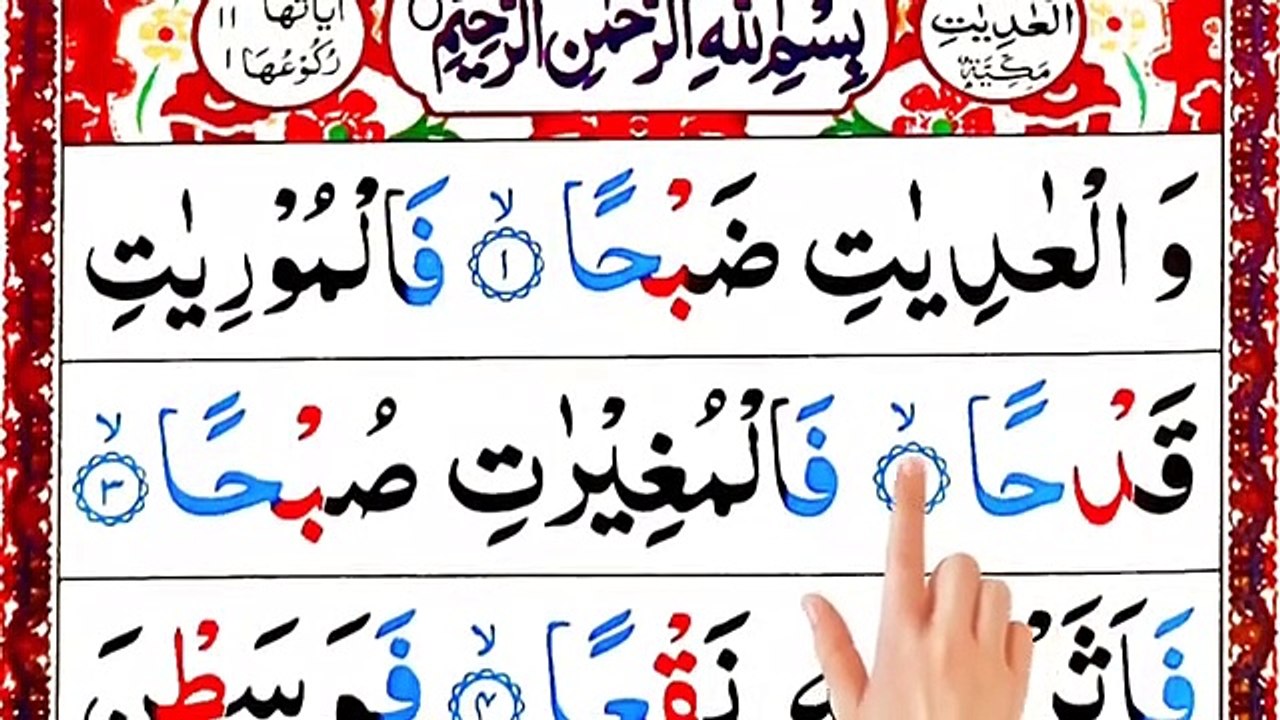 العٰدِيٰتِ مَكِّيَّةٌ
بِسْمِ اللّٰهِ الرَّحْمٰنِ الرَّحِيْمِ
اٰيَاتُهَا ١١ رُكُوْعُهَا ١
وَ الْعٰدِيٰتِ ضَبْحًا ۙ ١ فَالْمُوْرِيٰتِ
قَدْحًا ۙ فَالْمُغِيْرٰتِ صُبْحًا ۙ ٣
فَاَثَرْ نَقْعًا ۙ ٤ فَوَسَطْنَ